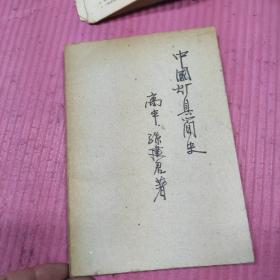 中國灯具简史
高丰、孙建君著